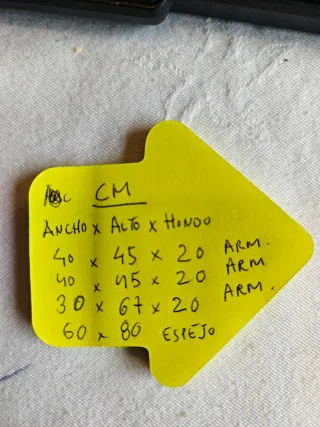 CM
ANCHO x ALTO x HONDO
40 x 45 x 20 ARM.
40 x 45 x 20 ARM
30 x 67 x 20 ARM.
60 x 80 ESPEJO